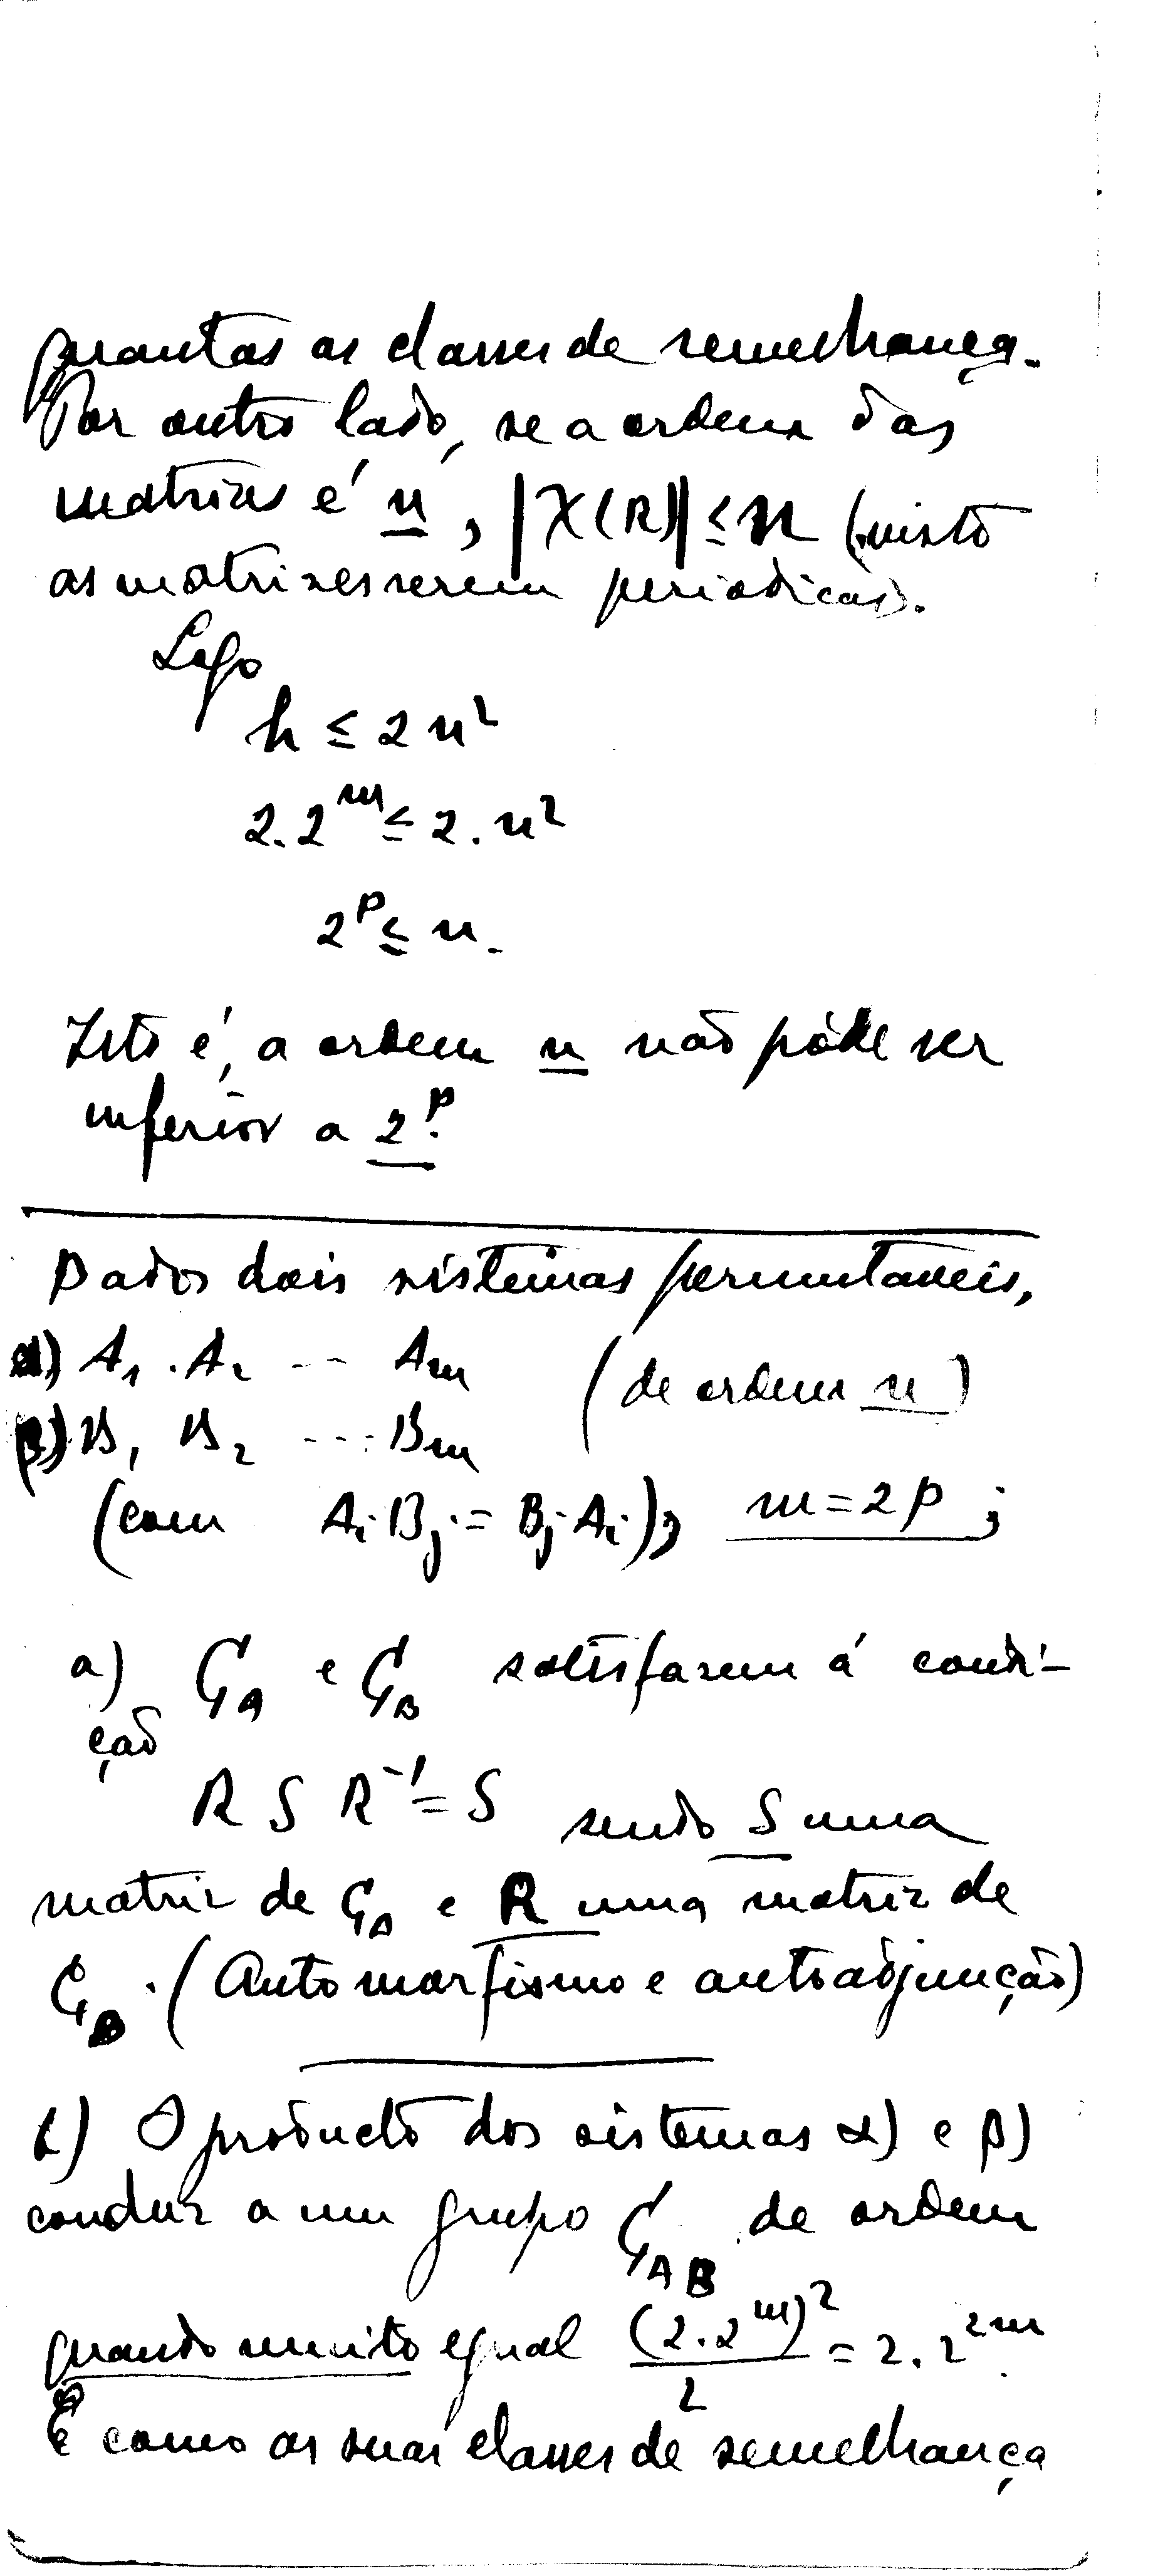 quantas as classes de semelhança.
Por outro lado, se a ordem das
matrizes é n, |χ(R)| ≤ n (visto
as matrizes serem periodicas).
Logo
h ≤ 2 n²
2.2^m ≤ 2.n²
2^p ≤ n.
Isto é, a ordem n não póde ser
inferior a 2^p.
Dados dois sistemas permutaveis,
α) A₁ . A₂ ... Am (de ordem n)
β) B₁ B₂ ... Bm
(com Ai.Bj = Bj.Ai), m = 2p ;
a) G_A e G_B satisfazem á condi-
ção
R S R⁻¹ = S sendo S uma
matriz de G_A e R uma matriz de
G_B. (Automorfismo e autoadjunção)
b) O producto dos sistemas α) e β)
conduz a um grupo G_AB de ordem
quando muito egual (2.2^m)²/2 = 2.2^2m
E como as suas classes de semelhança